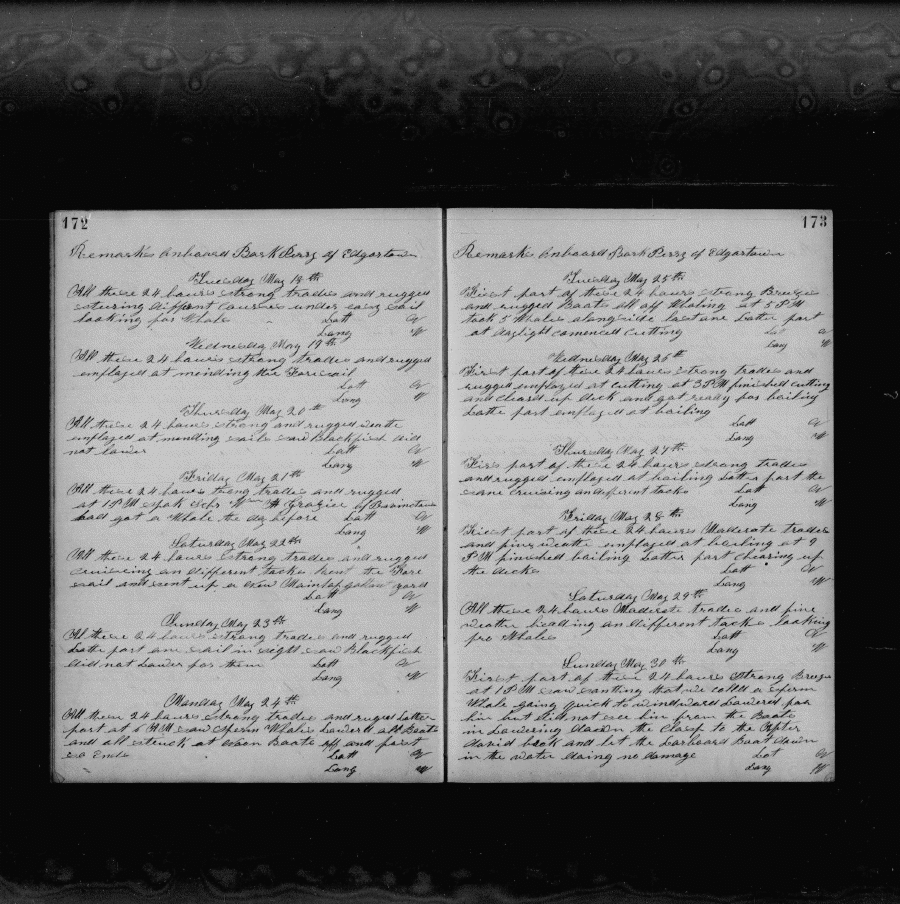 172
Remarks Onboard Bark Perry of Edgartown
Tuesday May 18th
All these 24 hours strong trades and rugged
steering different Courses under easy sail
looking for Whale Latt
Long W
Wednesday May 19th
All these 24 hours strong trades and rugged
employed at mending the Foresail
Latt
Long W
Thursday May 20th
All these 24 hours strong and rugged
employed at mending sails saw Blackfish did
not lower Latt
Long W
Friday May 21st
All these 24 hours strong trades and rugged
at 1 PM spok Schr Wm A Grozier of
had got a Whale the day before Latt
Long W
Saturday May 22nd
All these 24 hours strong trades and rugged
cruiseing on different tacks the Fore
sail and sent up a new yard
Latt
Long W
Sunday May 23th
All these 24 hours strong trades and rugged
Latter part one sail in sight saw Blackfish
did not Lower for them Latt
Long W
Monday May 24th
All these 24 hours strong trades and ruged Latter
part at 6 AM saw Sperm Whales Lowered all Boats
and all struck at noon Boats off and fast
so Ends Latt
Long W
173
Remarks Onboard Bark Perry of Edgartown
Tuesday May 25th
First part of these 24 hours strong Breeze
and rugged Boats all off Whaling at 5 PM
took 5 Whales alongside Latter part
at daylight comenced cutting Lat
Long W
Wednesday May 26th
First part of these 24 hours strong trades and
rugged employed at cutting at 3 PM finished cutting
and cleard up deck and got ready for boiling
Latter part employed at boiling
Latt
Long W
Thursday May 27th
Firs part of these 24 hours strong trades
and rugged employed at boiling Latter part the
same cruising on different tacks Latt
Long W
Friday May 28th
First part of these 24 hours Moderate trades
and fine weather employed at boiling at 9
PM finished boiling Latter part clearing up
the decks Latt
Long W
Saturday May 29th
All these 24 hours Moderate trades and fine
weather heading on different tacks looking
for Whales Latt
Long W
Sunday May 30th
First part of these 24 hours Strong Breeze
at 1 PM saw somting that we colld a sperm
Whale going quick to windward Lowered for
him but did not see him from the Boats
in Lowering down the to the After
david and let the Larboard Boat down
in the water doing no damage Lat
Long W